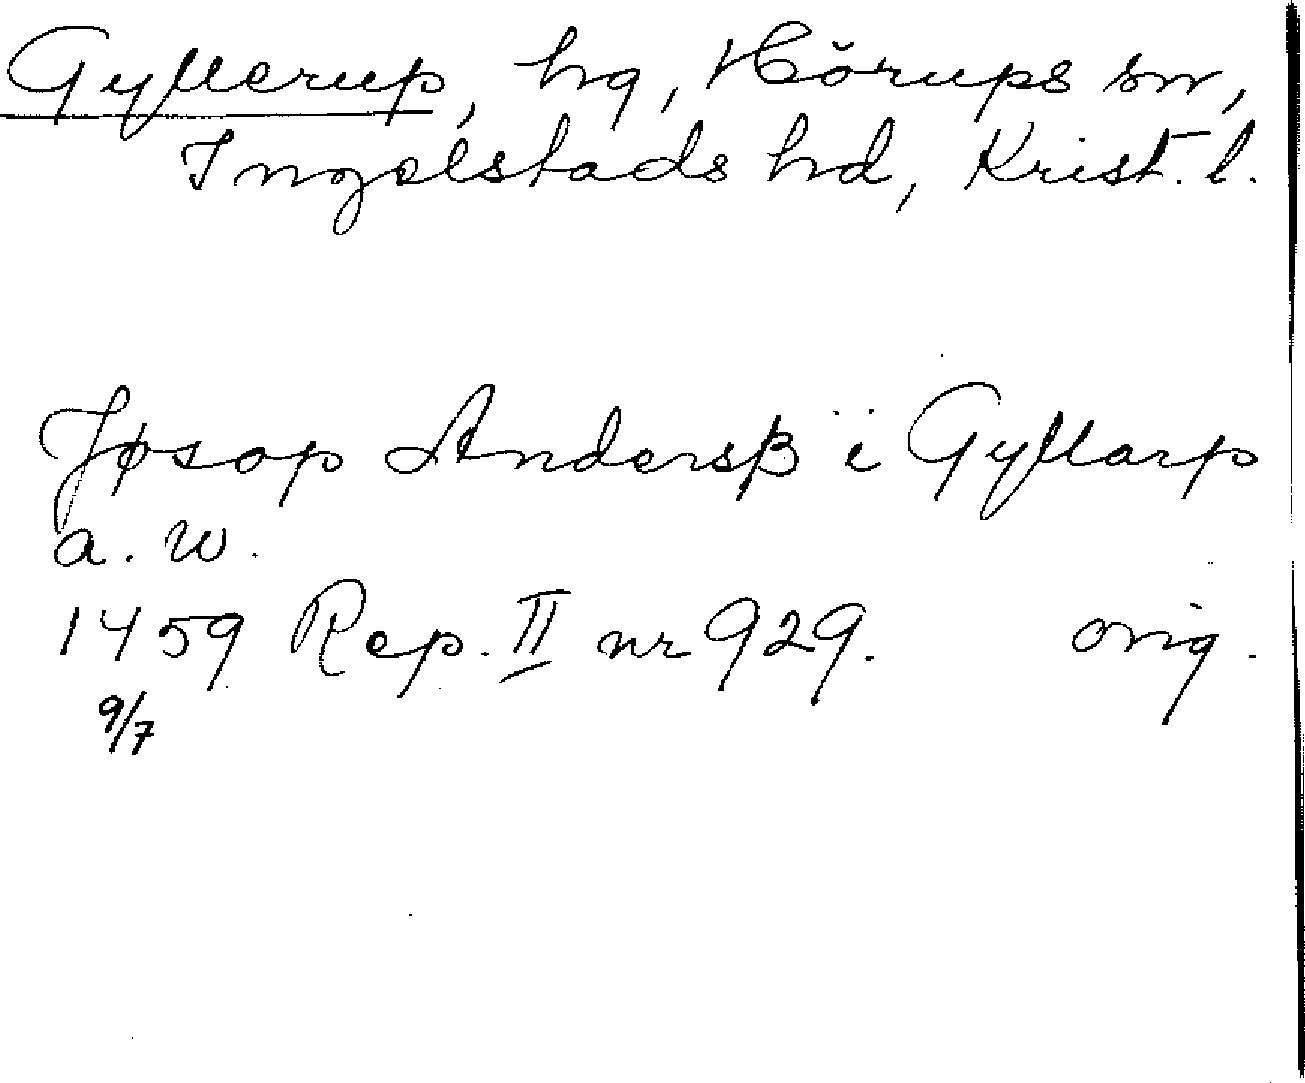 Gyllerup, hg, Hörups sn,
Ingelstads hd, Krist. l.
Jøsop Andersß i Gyllarp
a. w.
1459 Rep. II nr 929. orig.
9/7